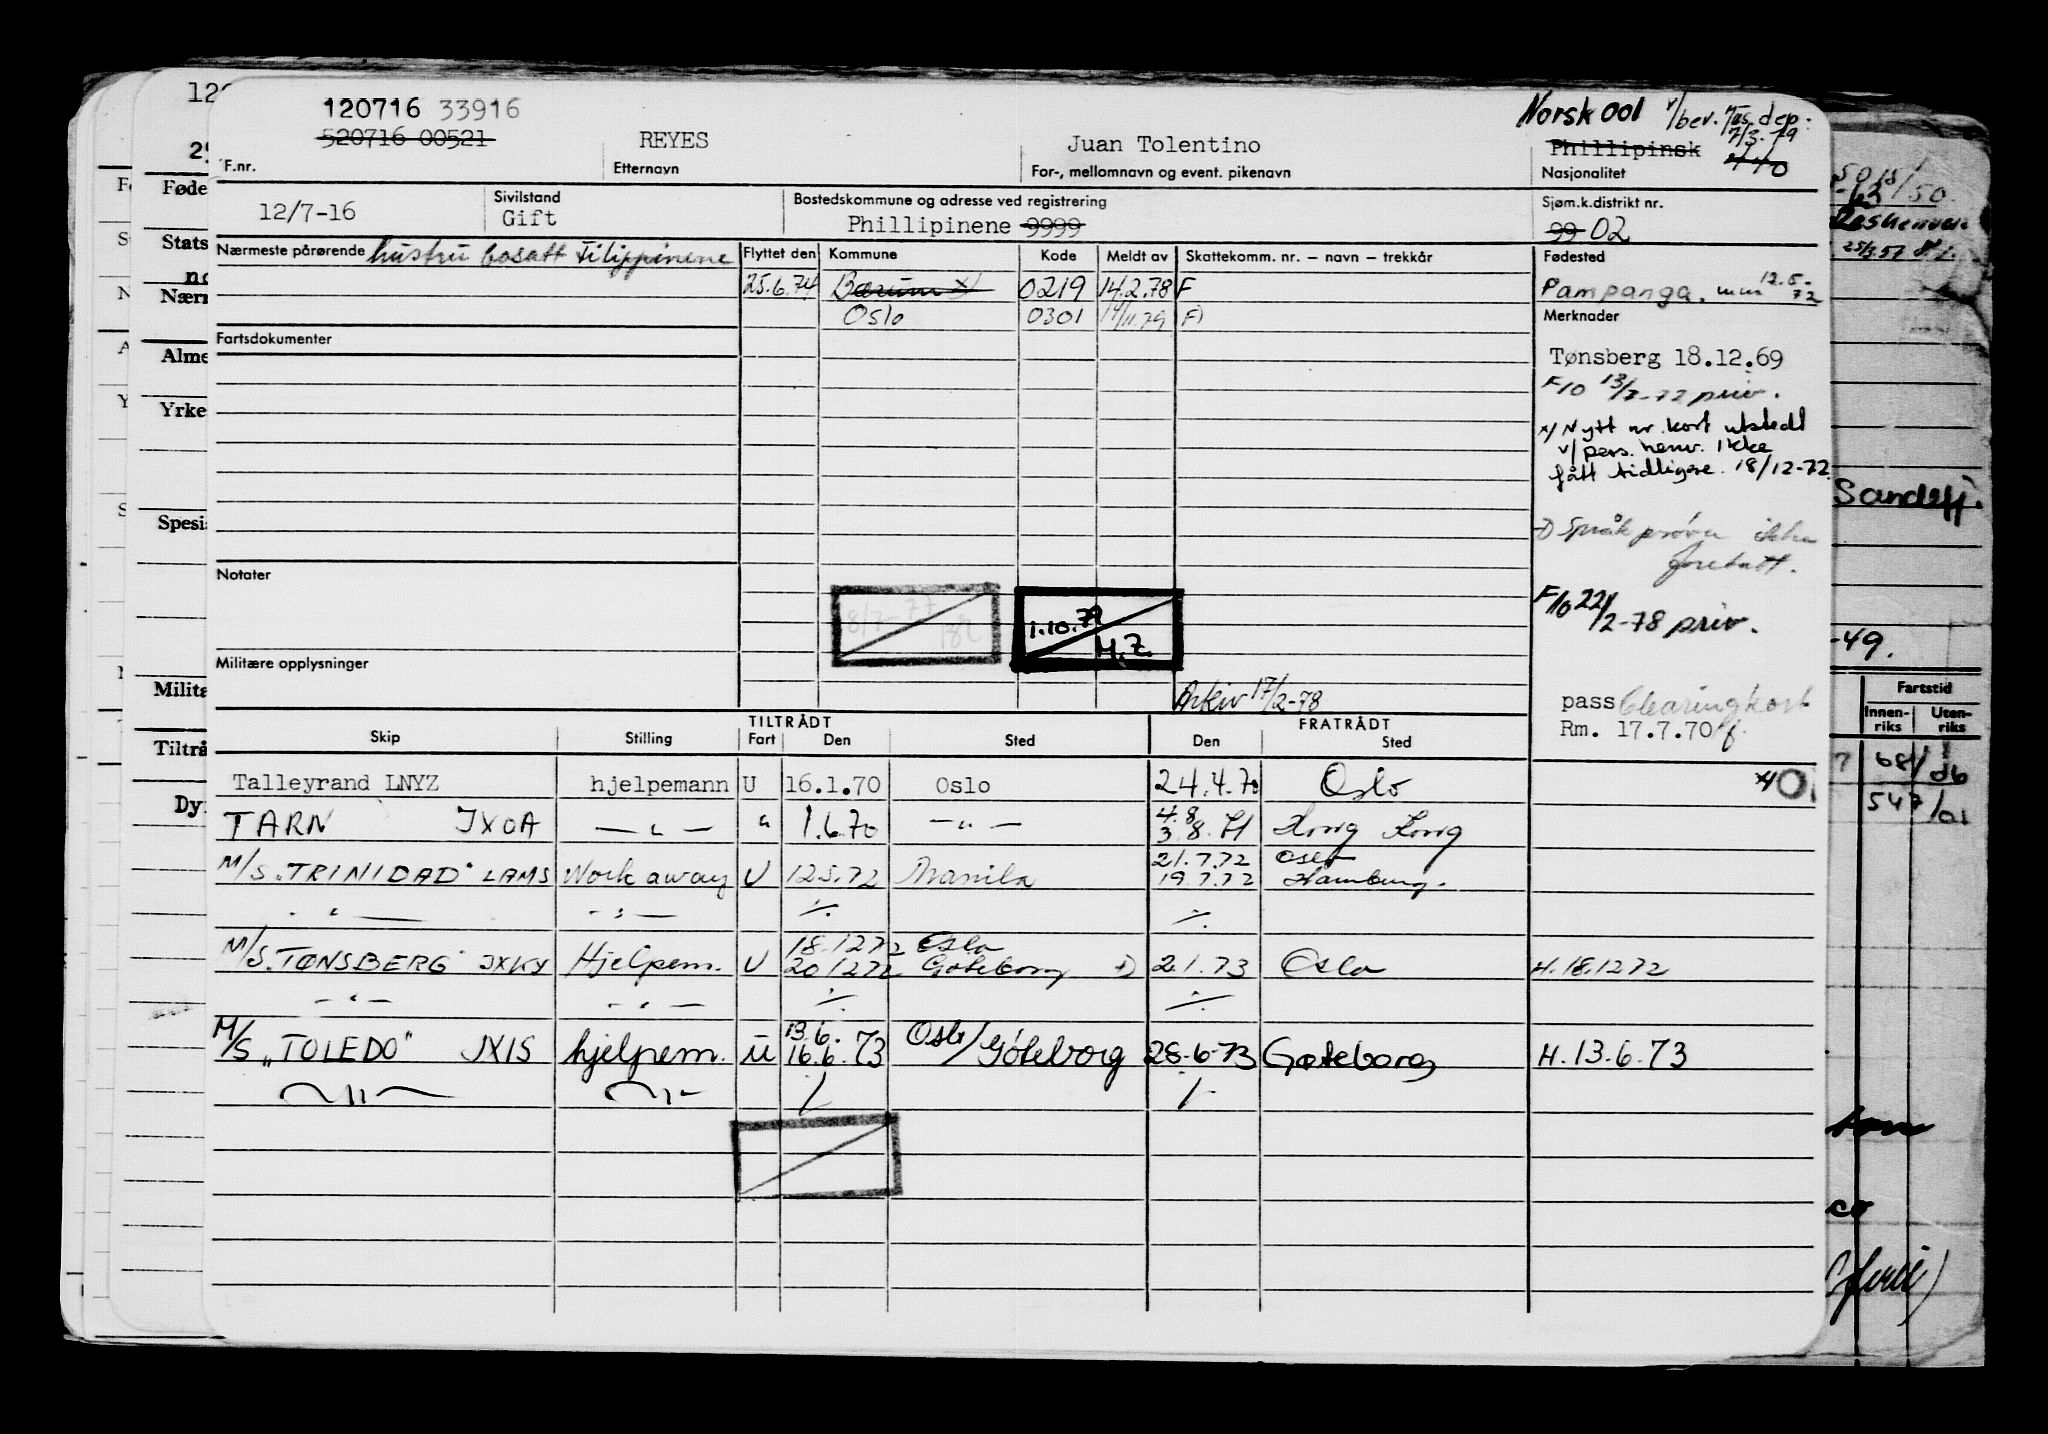 120716 33916
520716 00521
REYES
Juan Tolentino
Norsk 001 v/bev. dep:
7/3.79
Phillipinsk 440
F.nr.
Etternavn
For-, mellomnavn og event. pikenavn
Nasjonalitet
12/7-16
Sivilstand
Gift
Bostedskommune og adresse ved registrering
Phillipinene 9999
Sjøm.k.distrikt nr.
99 02
Nærmeste pårørende hustru bosatt Filippinene
Flyttet den Kommune Kode Meldt av Skattekomm. nr. – navn – trekkår
Fødested
25.6.74 Bærum x) 0219 14.2.78 F
Pampanga. 12.5-72
Oslo 0301 14/11.79 F)
Merknader
Fartsdokumenter
Tønsberg 18.12.69
F10 13/7-72 priv.
x/ Nytt nr. kort utstedt
v/pers. henv. Ikke
fått tidligere. 18/12-72
Språkprøve ikke
foretatt.
Notater
F10 22/2-78 priv.
8/7-77
1.10.79
H.Z.
Militære opplysninger
Arkiv 17/2-78
pass Clearingkort
Rm. 17.7.70
TILTRÅDT FRATRÅDT
Skip Stilling Fart Den Sted Den Sted
Talleyrand LNYZ hjelpemann U 16.1.70 Oslo 24.4.70 Oslo
TARN JXOA — " — " 1.6.70 — " — 4.8 3.8.71 Hong Kong
M/S "TRINIDAD" LAMS Work away U 12.5.72 Manila 21.7.72 Oslo
19.7.72 Hamburg.
— " — — " — ./. ./.
18.12.72 Oslo
M/S. TØNSBERG JXKY Hjelpem. U 20.12.72 Göteborg 2.1.73 Oslo H.18.12.72
— " — — " — ./. ./.
13.6.
M/S "TOLEDO" JXIS hjelpem. U 16.6.73 Oslo/Göteborg 28.6.73 Gøteborg H.13.6.73
— " — — " — ./. ./.
120
Føde
Stats
Nærm
Alme
Yrke
Spesia
Milita
Tiltrå
Dy
Sandefj.
-49.
Fartstid
Innen-riks Uten-riks